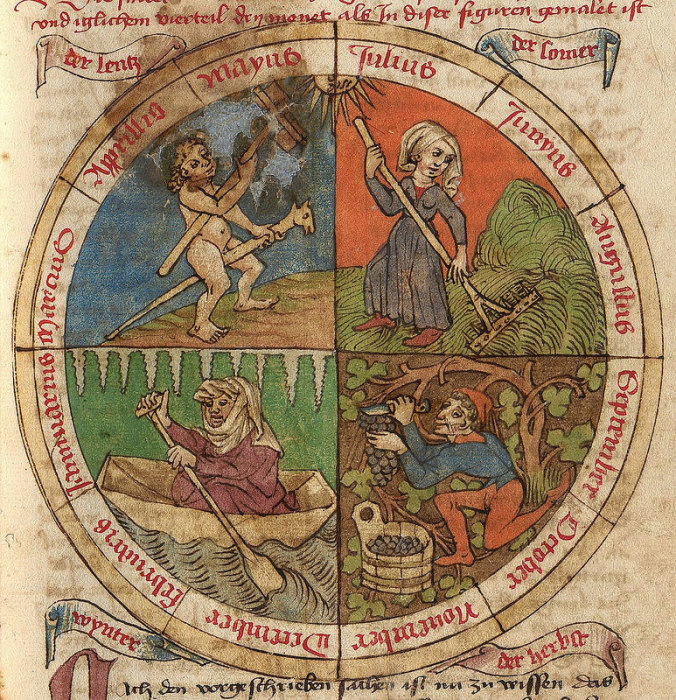 vnd iglichem vierteil dry monet als In diser figuren gemalet ist
der lentz
Mayus
Julius
der somer
Apprillis
Junyus
Augustus
September
October
November
December
wynter
der herbst
Nach den vorgeschrieben sachen ist nu zu wissen das